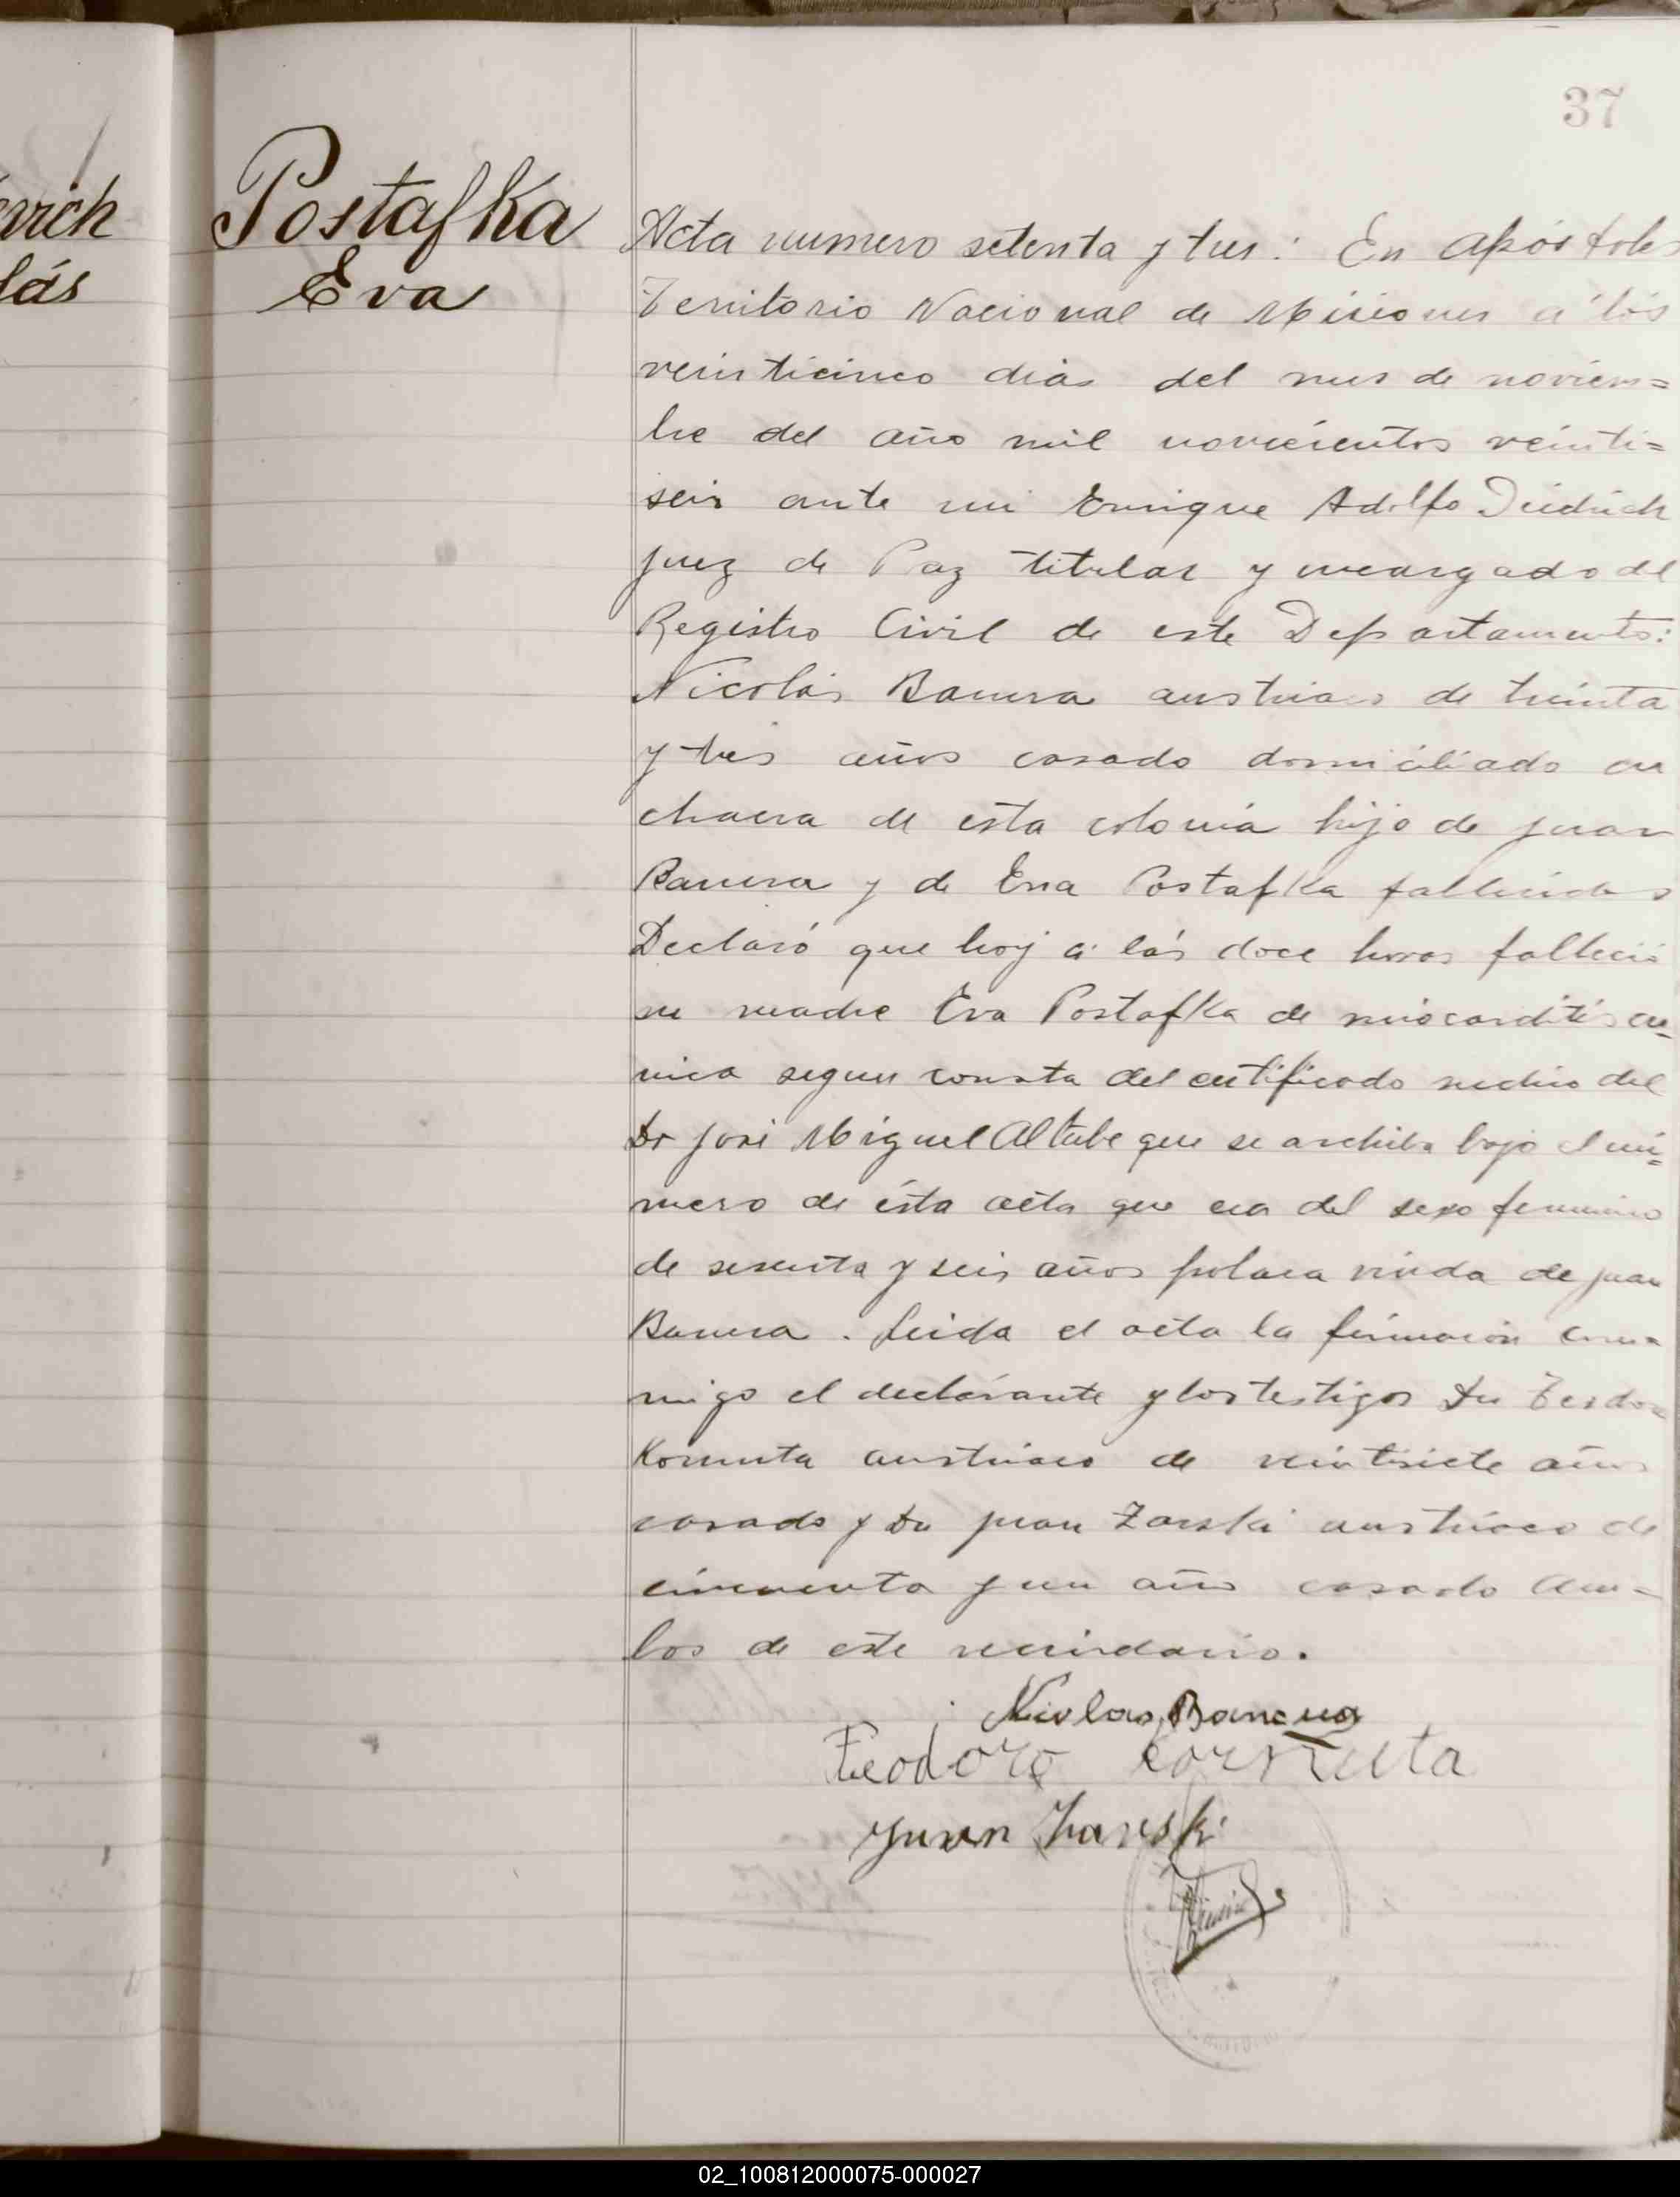 37
vich
lás
Postafka
Eva
Acta numero setenta y tres: En Apóstoles
Territorio Nacional de Misiones a lós
veinticinco dias del mes de noviem=
bre del año mil novecientos veinti=
seis ante mi Enrique Adolfo Diedrich
juez de Paz titular y encargado del
Registro Civil de este Departamento:
Nicolás Banera austriaco de treinta
y tres años casado domiciliado en
chacra de esta colonia hijo de juan
Banera y de Eva Postafka fallecidos
Declaró que hoy a lás doce horas falleció
su madre Eva Postafka de miocarditis cró
nica segun consta del certificado medico del
Dr José Miguel Altube que se archiba bajo el nú=
mero de ésta acta que era del sexo femenino
de sesenta y seis años polaca viuda de juan
Banera. Leida el acta la firmaron con=
migo el declarante y los testigos Dn Teodoro
Kornuta austriaco de veintisiete años
casado y Dn juan Zarski austriaco de
cincuenta y un año casado am=
bos de este vecindario.
Nicolas Banera
Teodoro Cornuta
Juan Zarski
02_100812000075-000027